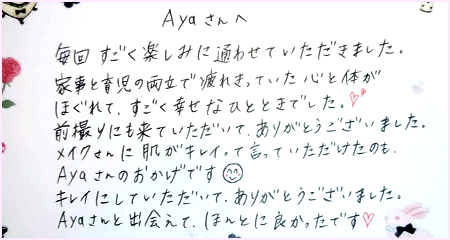 Ayaさんへ
毎回 すごく楽しみに通わせていただきました。
家事と育児の両立で疲れきっていた心と体が
ほぐれて、すごく幸せなひとときでした。♡♡
前撮りにも来ていただいて、ありがとうございました。
メイクさんに肌がキレイって言っていただけたのも、
Ayaさんのおかげです☺
キレイにしていただいて、ありがとうございました。
Ayaさんと出会えて、ほんとに良かったです♡